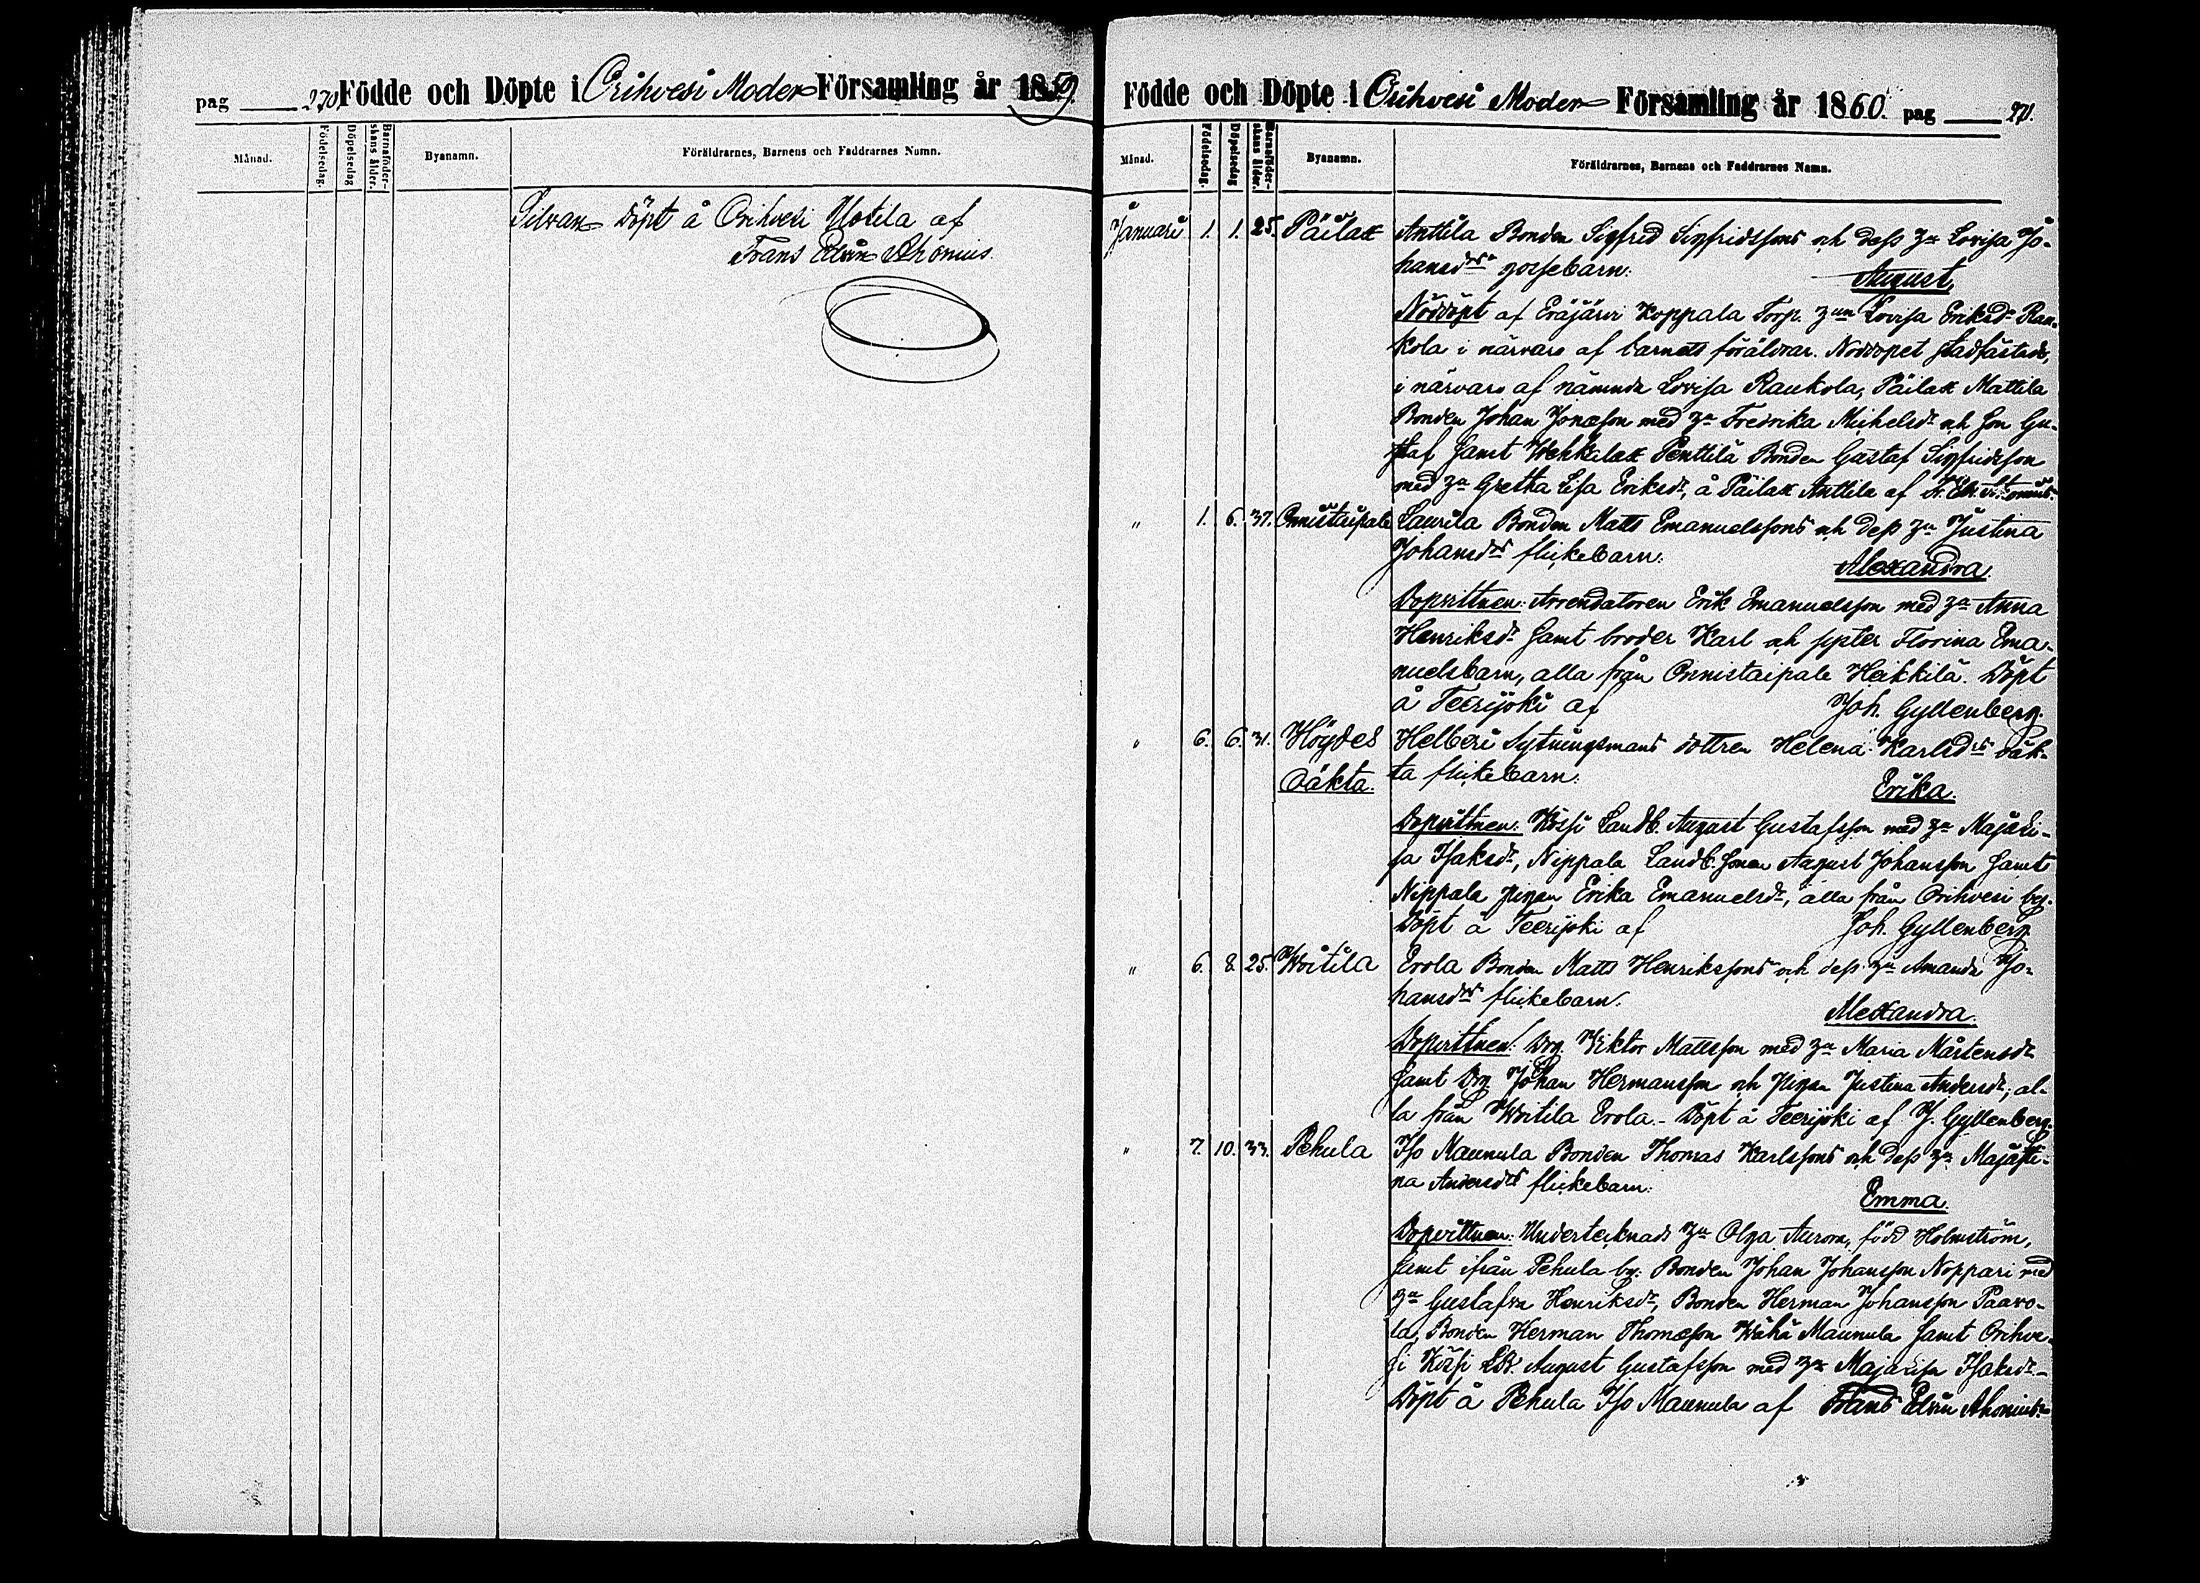 pag 270. Födde och Döpte i Orihvesi Moder Församling år 1859.
Månad. Födelsedag. Döpelsedag Barnaföderskans ålder. Byanamn. Föräldrarnes, Barnens och Faddrarnes Namn.
Silvan Döpt å Orihvesi Uotila af
Frans Edvin Ahonius.
Födde och Döpte i Orihvesi Moder Församling år 1860. pag 271.
Månad. Födelsedag. Döpelsedag Barnaföderskans ålder. Byanamn. Föräldrarnes, Barnens och Faddrarnes Namn.
Januari 1. 1. 25. Päilax Anttila Bonden Sigfred Sigfridssons och dess hu Lovisa Jo-
hansdrs gossebarn: August
Nöddöpt af Eräjärvi Koppala Torp. hun Lovisa Eriksdr Rau-
kola i närvaro af barnets föräldrar. Nöddopet stadfästade,
i närvaro af nämnda Lovisa Raukola, Päilax Mattila
Bonden Johan Jonasson med hu Fredrika Michelsdr och son Gu-
staf samt Wehkalax Penttilä Bonden Gustaf Sigfridsson
med hu Gretha Lisa Eriksdr, å Päilax Anttila af
" 1. 6. 37. Onnistaipale Laurila Bonden Matts Emanuelssons och dess hu Justina
Johansdrs flickebarn: Alexandra.
Dopvittnen: Arrendatoren Erik Emanuelsson med hu Anna
Henriksdr samt broder Karl och syster Florina Ema-
nuelsbarn, alla från Onnistaipale Heikkilä. Döpt
å Teerijoki af Joh. Gyllenberg.
" 6. 6. 31. Höydes Helberi Sytningsmans dottren Helena Karlsdrs oäk-
Oäkta. ta flickebarn: Erika.
Dopvittnen: Kössi Landb. August Gustafsson med hu Maja Li-
sa Isaksdr, Nippala Landb. sonen August Johansson samt
Nippala pigan Erika Emanuelsdr, alla från Orihvesi by.
Döpt å Teerijoki af Joh. Gyllenberg
" 6. 8. 25. Woitila Erola Bonden Matts Henrikssons och dess hu Amanda Jo-
hansdrs flickebarn. Alexandra.
Dopvittnen: Drg Viktor Mattsson med hu Maria Mårtensdr
samt Drg Johan Hermansson och Pigan Justina Andersdr, al-
la från Woitila Erola. - Döpt å Teerijoki af J. Gyllenberg.
" 7. 10. 33. Pehula Iso Maunula Bonden Thomas Karlssons och dess hu Maja Sti-
na Andersdrs flickebarn: Emma.
Dopvittnen: Undertecknads hu Olga Aurora, född Holmström,
samt ifrån Pehula by: Bonden Johan Johansson Noppari med
hu Gustafva Henriksdr, Bonden Herman Johansson Paavo-
la, Bonden Herman Thomasson Wähä Maunula samt Orihve-
si Kössi LB. August Gustafsson med hu Maja Lisa Isaksdr -
Döpt å Pehula Iso Maunula af Frans Edvin Ahonius.